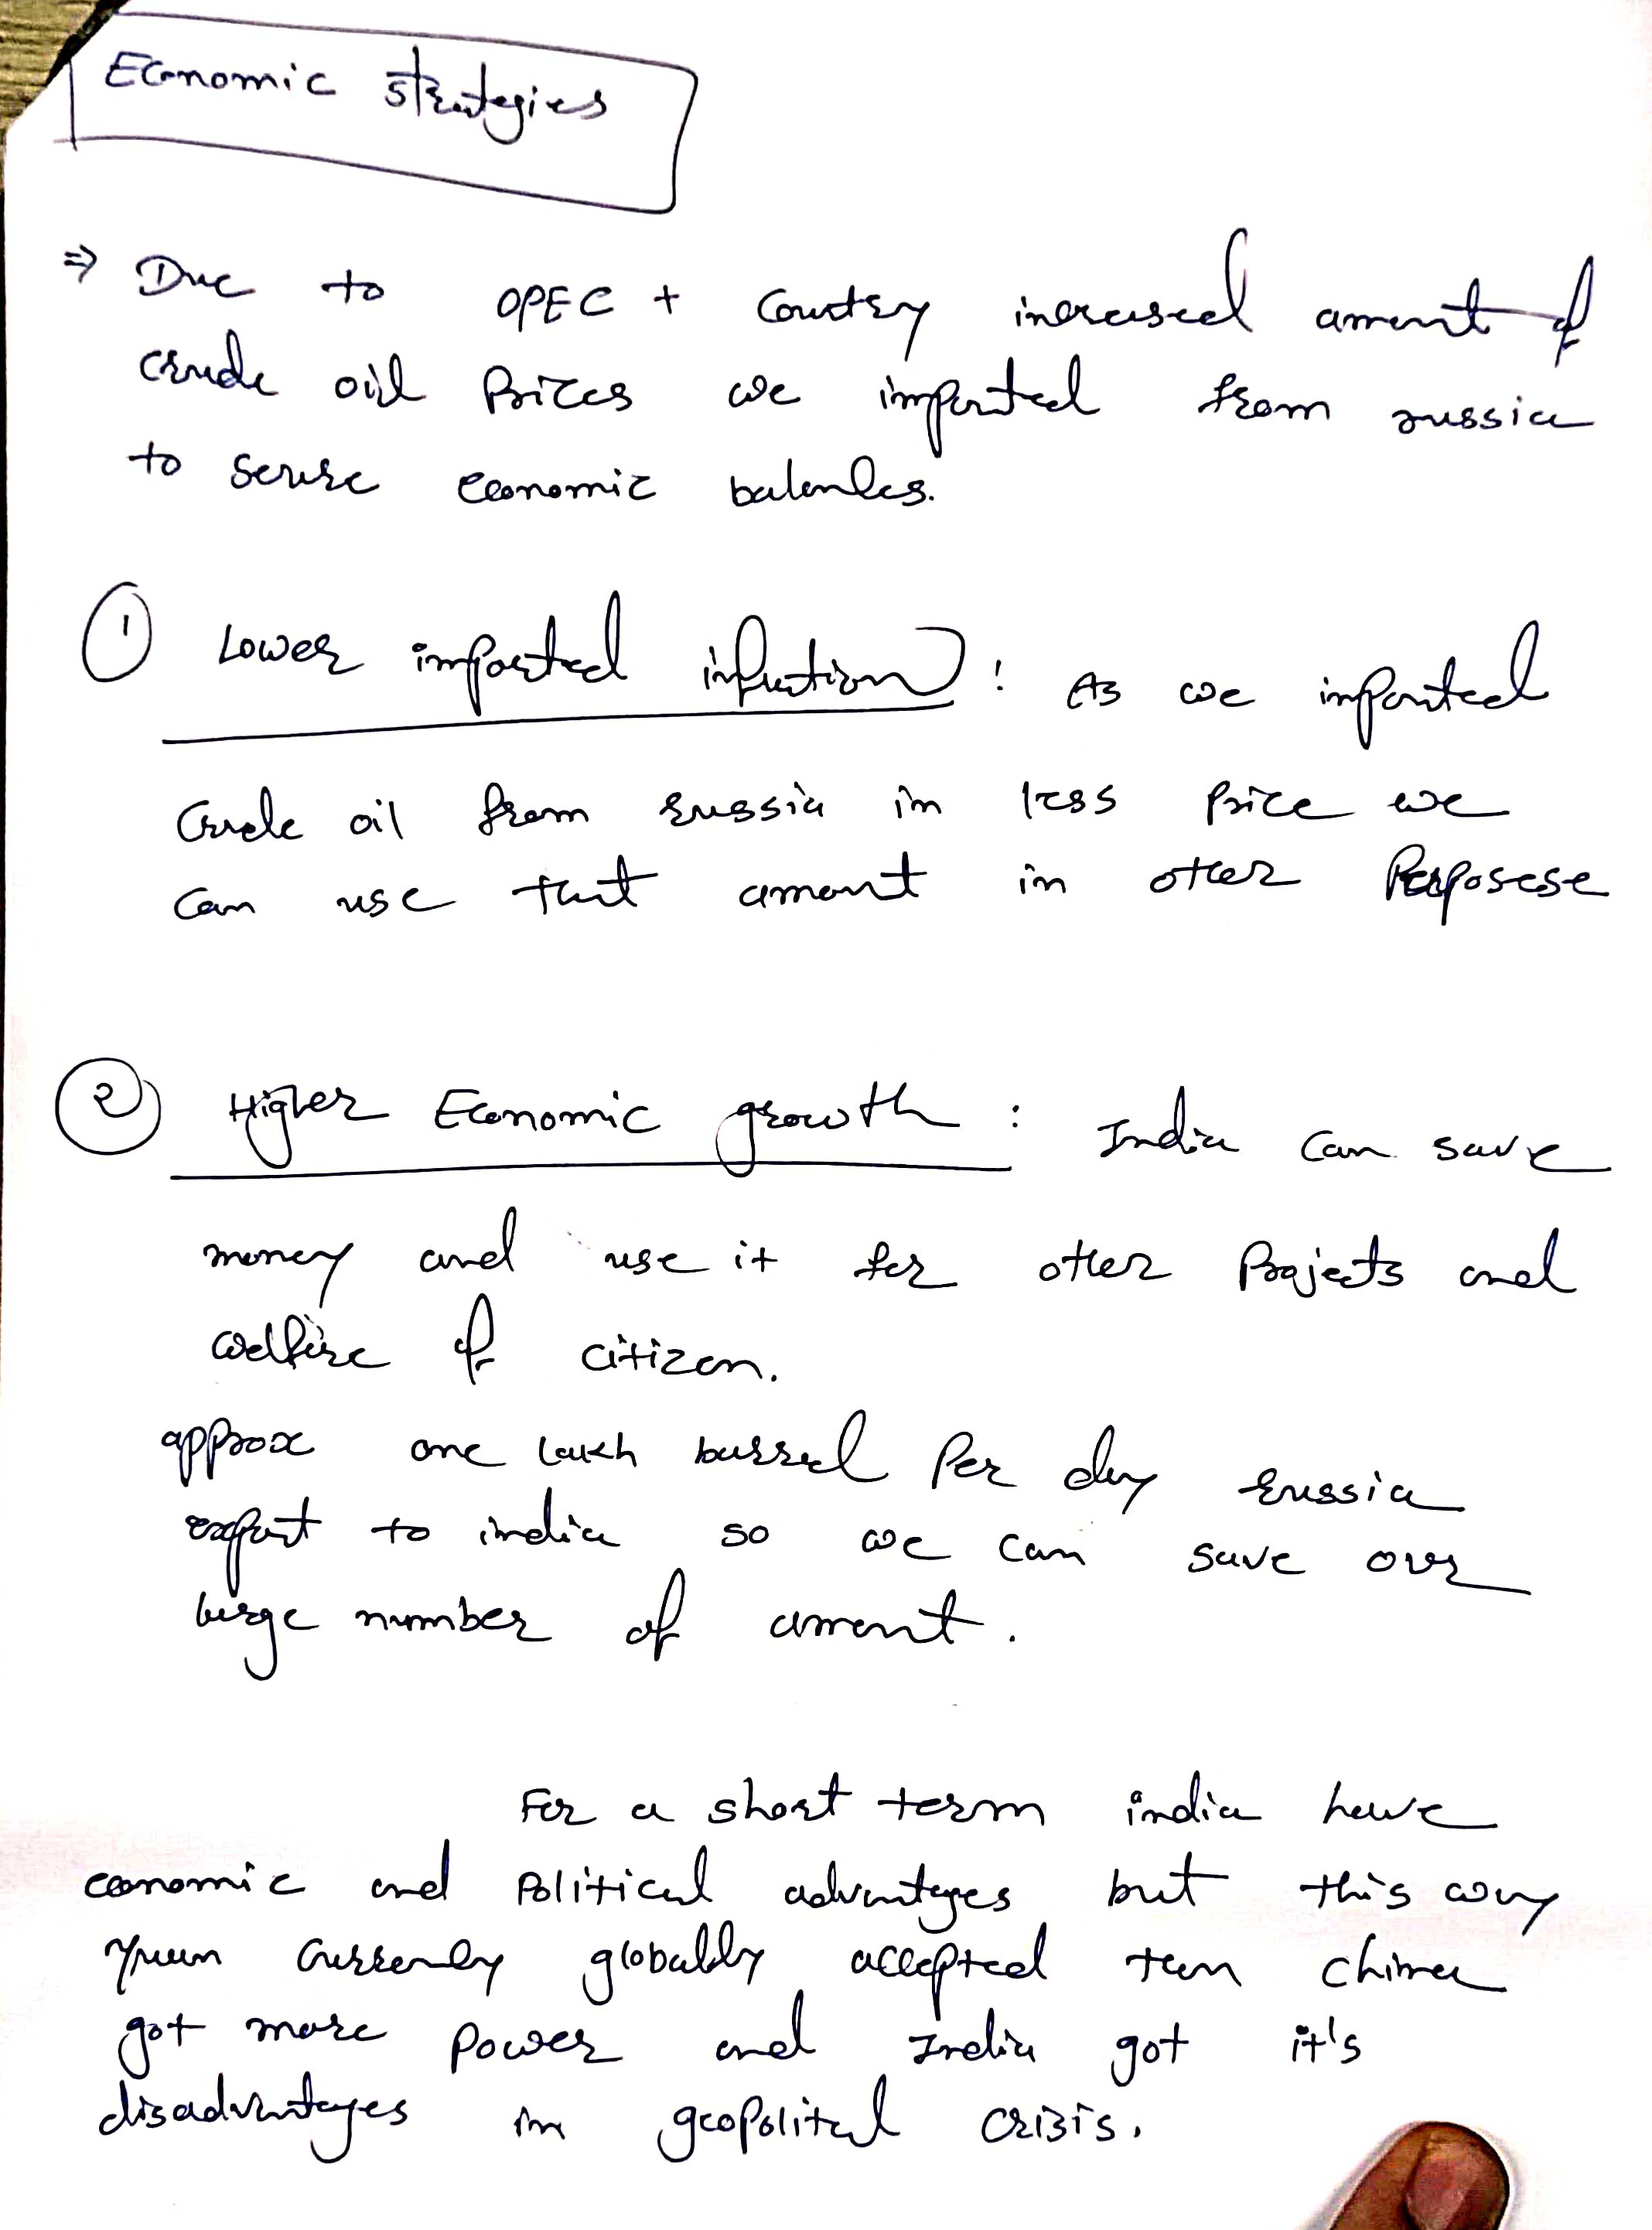 Economic strategies
⇒ Due to OPEC + Country increased amount of
crude oil Prices we imported from russia
to serure economic balances.
① Lower imported influction : As we imported
Crude oil from russia in less price we
can use that amount in other Perposese
② Higher Economic growth : India can save
money and use it for other Projects and
welfare of citizen.
approx one lakh barrel Per day russia
export to india so we can save our
large number of amount.
For a short term india have
economic and Political advantages but this way
yuan Currency globally accepted then china
got more power and India got it's
disadvantages in geopolital crisis.